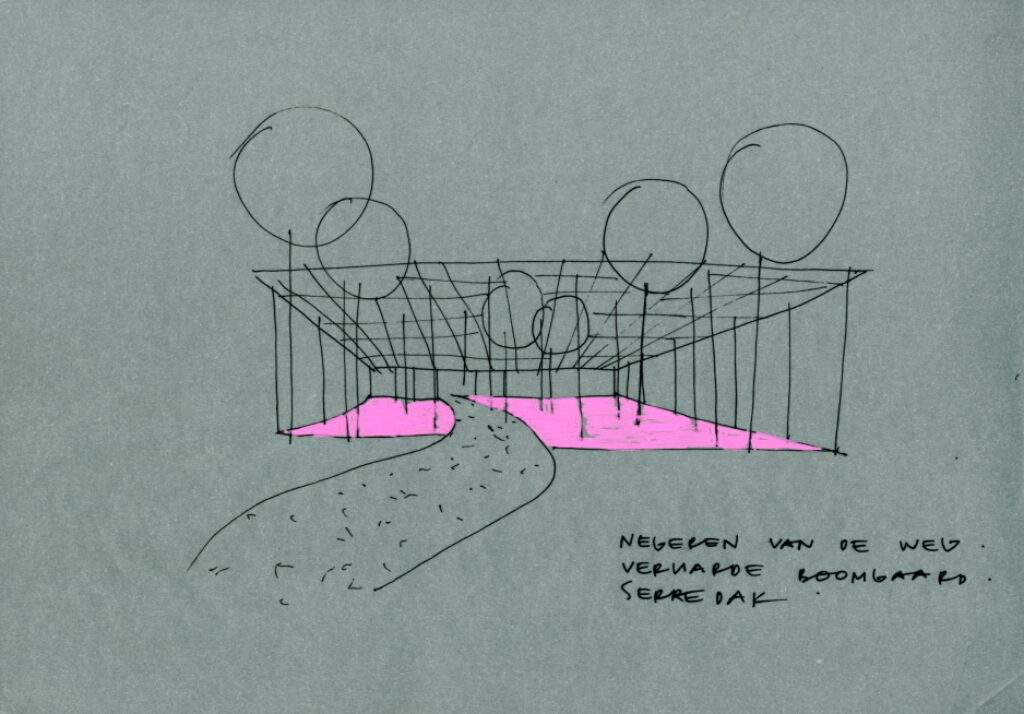 NEGEREN VAN DE WEG.
VERHARDE BOOMGAARD.
SERRE DAK.